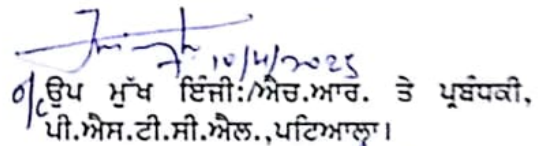 10/4/2025
o/c ਉਪ ਮੁੱਖ ਇੰਜੀ:/ਐਚ.ਆਰ. ਤੇ ਪ੍ਰਬੰਧਕੀ,
ਪੀ.ਐਸ.ਟੀ.ਸੀ.ਐਲ.,ਪਟਿਆਲਾ।